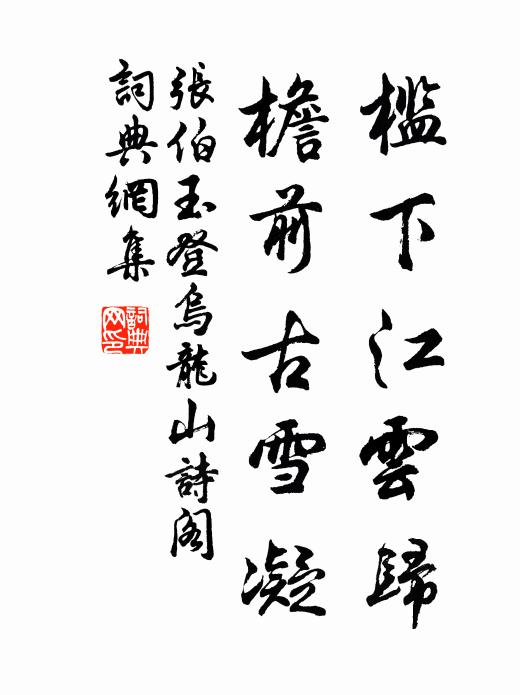 檻下江雲歸
檐前古雪凝
張伯玉登烏龍山詩閣
詞典網集
詞典
网印